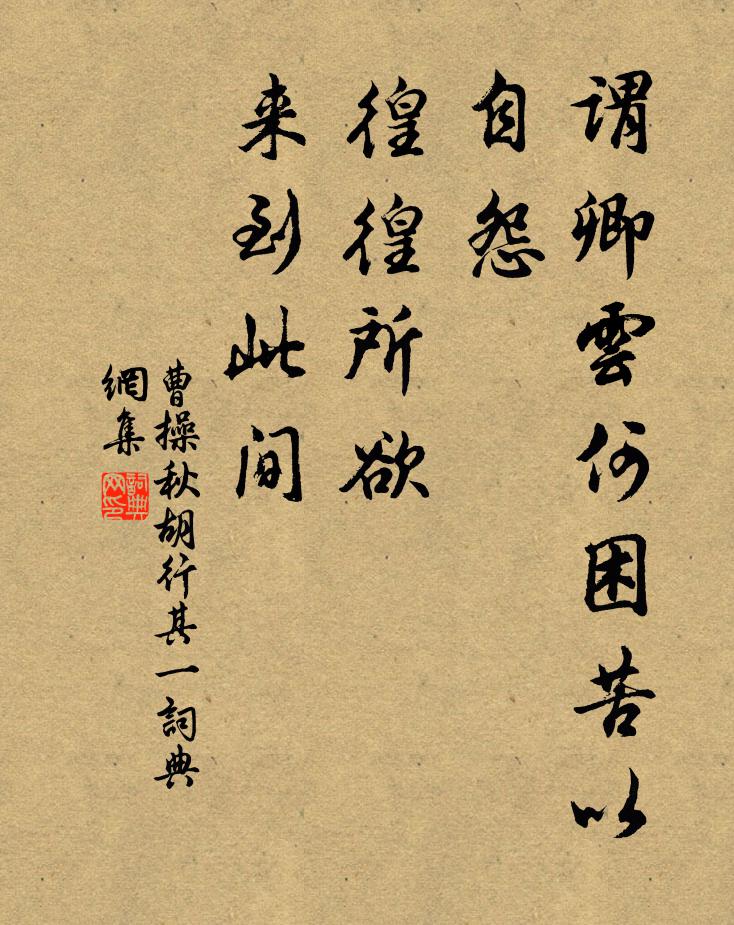 謂卿雲何困苦以
自怨
徨徨所欲
来到此間
曹操秋胡行其一詞典
網集
詞典
网印